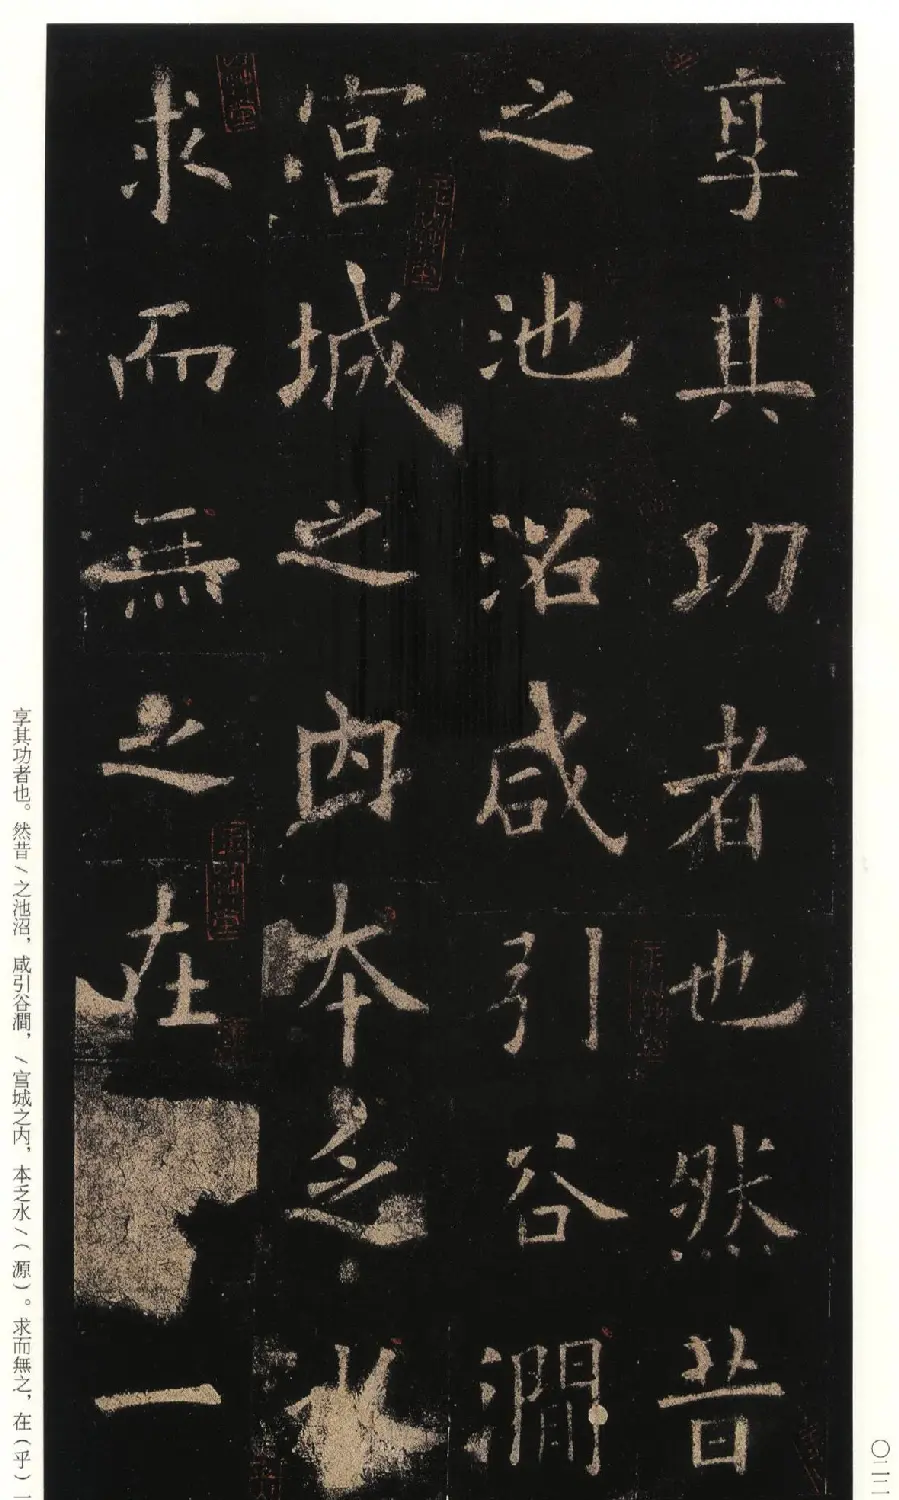 享其功者也然昔
之池沼咸引谷澗
宮城之内本之水
求而無之在一
享其功者也。然昔/之池沼，咸引谷澗，/宮城之内，本之水/(源)。求而無之，在(乎)一
〇二二